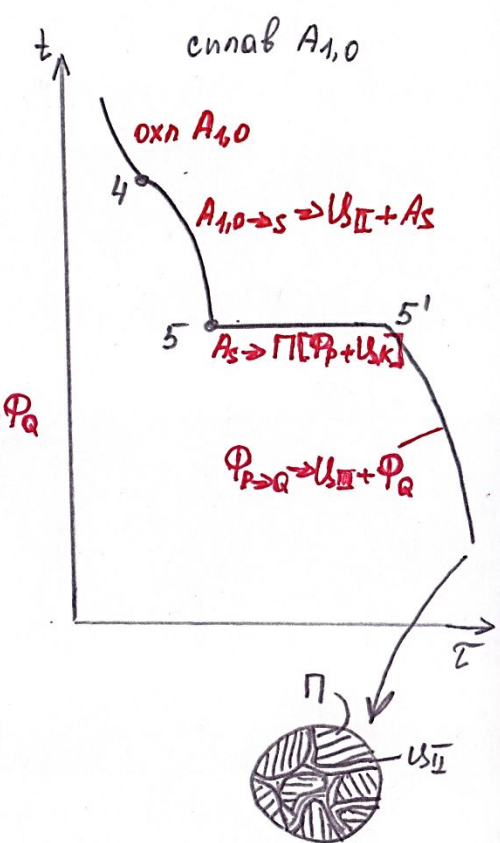 сплав А1,0
t
охл А1,0
4
А1,0→S → ЦII + АS
5
5'
АS → П[ФP + ЦK]
ФQ
ФP→Q → ЦIII + ФQ
τ
П
ЦII